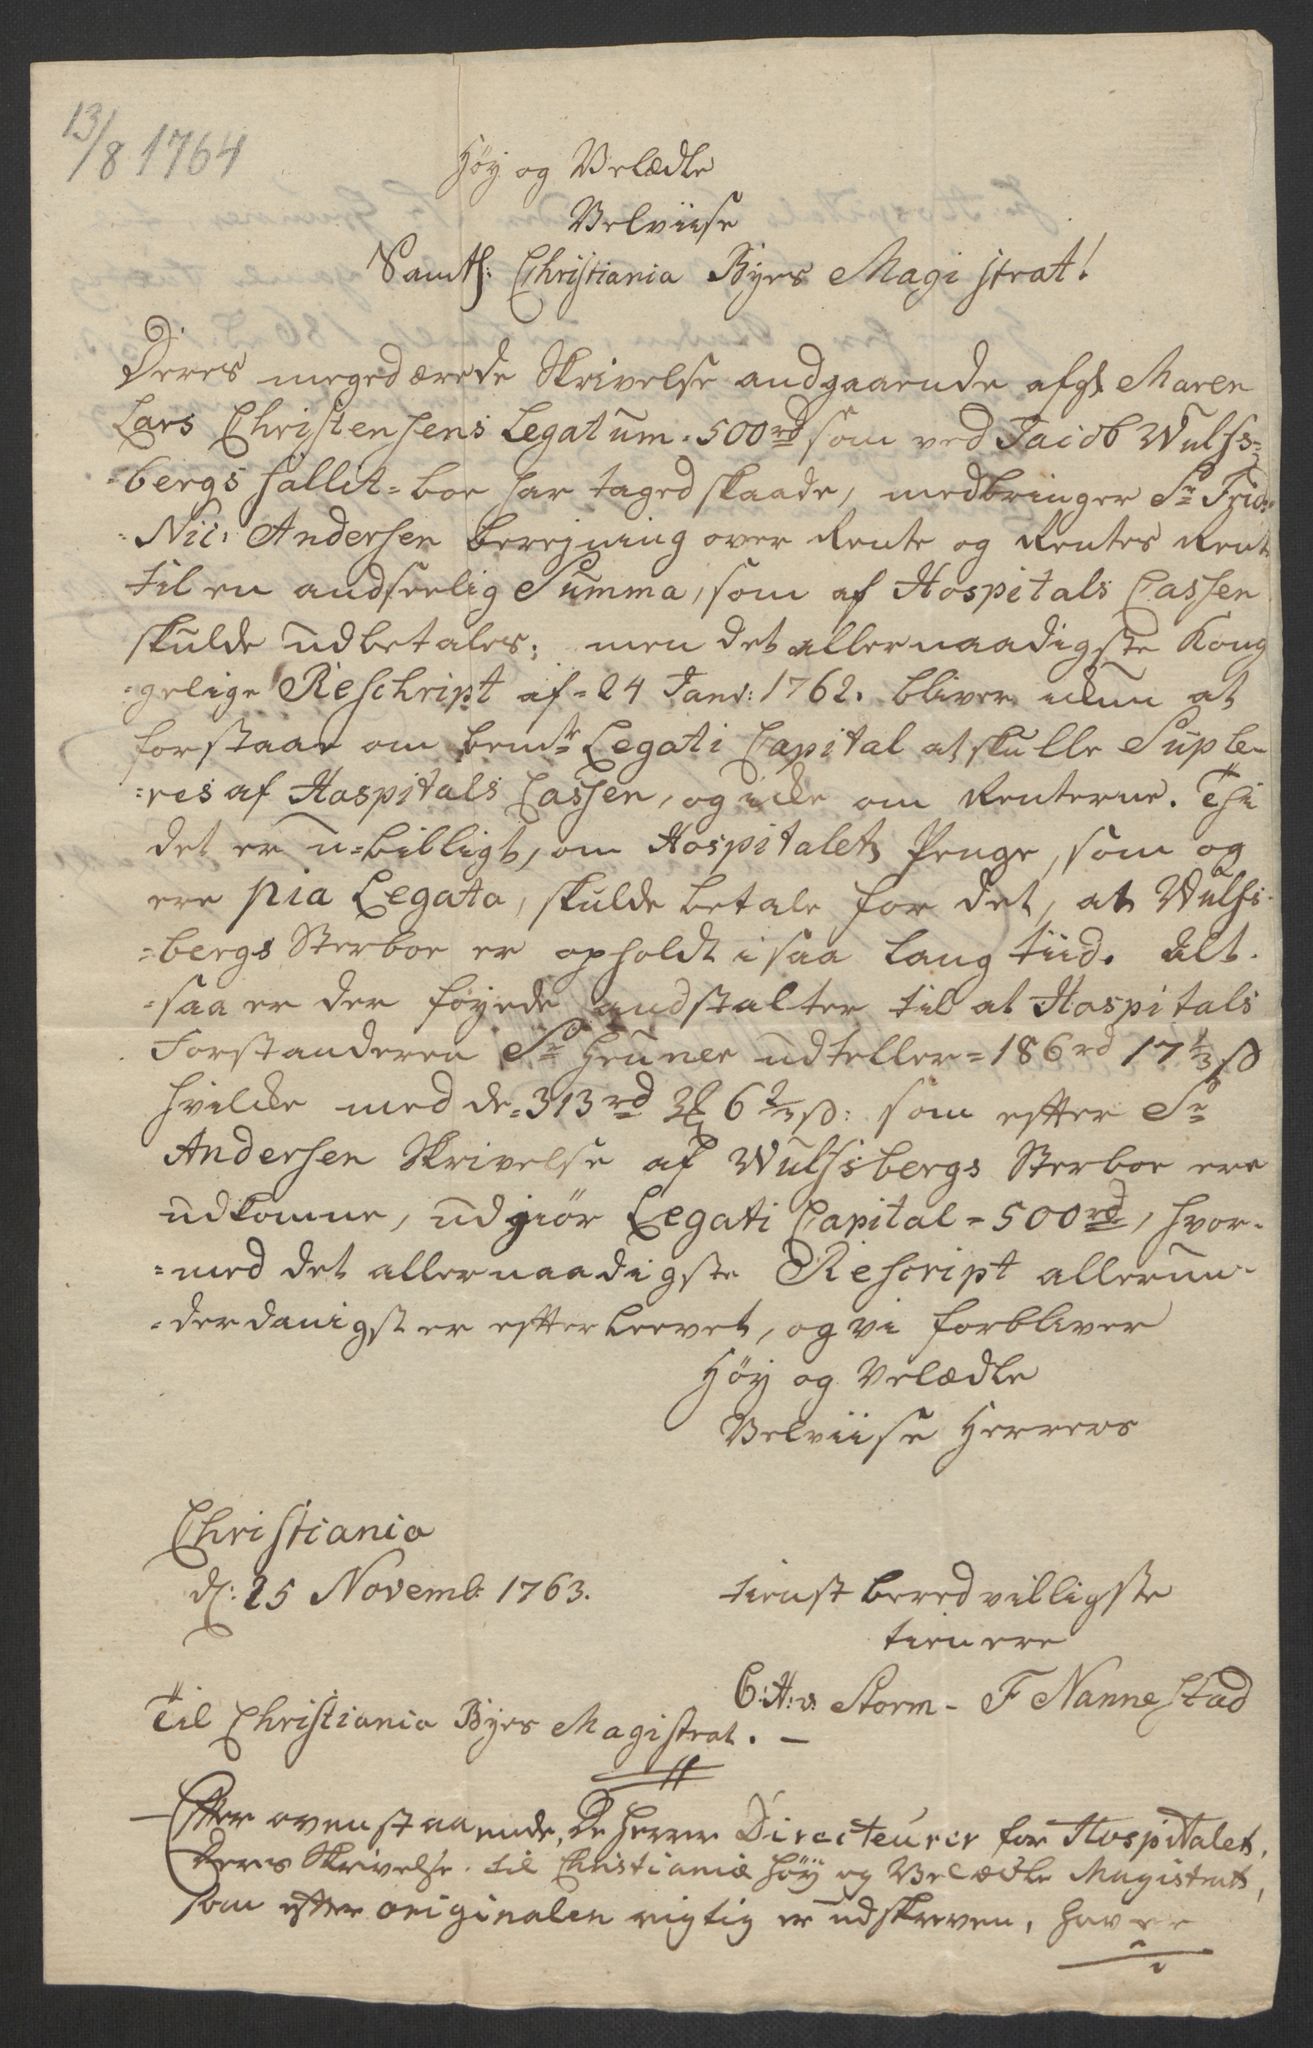 13/8 1764
Höy og Velædle
Velviise
Samtl: Christiania Byes Magistrat!
Deres megedærede Skrivelse andgaaende afg: Maren
Lars Christensens Legatum 500rd som ved Jacob Wulfs=
=bergs fallit=boe har taged skaade, medbringer Sr Frid:
Nic: Andersen bereigning over Rente og Rentes Rent
til en andseelig Summa, som af Hospitals Cassen
skulde udbetales; men det allernaadigste Kong
=gelige Reschript af 24 Janv: 1762. bliver ickun at
forstaae om bemte Legati Capital at skulle Suple-
=res af Hospitals Cassen, og icke om Renterne. Thi
det er u=billigt, om Hospitalets Penge, som og
ere pia Legata, skulde betale for det, at Wulfs
=bergs Sterboe er opholdt i saa lang tiid. Alt-
=saa er der föyede andstalter til at Hospitals
Forstanderen Sr Heuner udteller = 186rd 17 1/3 ß
hvilcke med de = 313rd 3 6 2/3 ß: som efter Sr
Andersen Skrivelse af Wulfsbergs Sterboe ere
udkomne, udgiör Legati Capital = 500rd, hvor-
=med det allernaadigste Rescript allerun-
=derdanigst er efterleevet, og vi forbliver
Höy og Velædle
Velviise Herrers
Christiania
d: 25 Novemb: 1763.
tienstberedvilligste
tienere
C: H: v: Storm - F Nannestad
Til Christiania Byes Magistrat. —
Efter ovenstaaende, De Herrer Directeurer for Hospitalet,
Deres Skrivelse til Christianiæ Höy og Velædle Magistrat,
som efter originalen rigtig er udskreven, haver